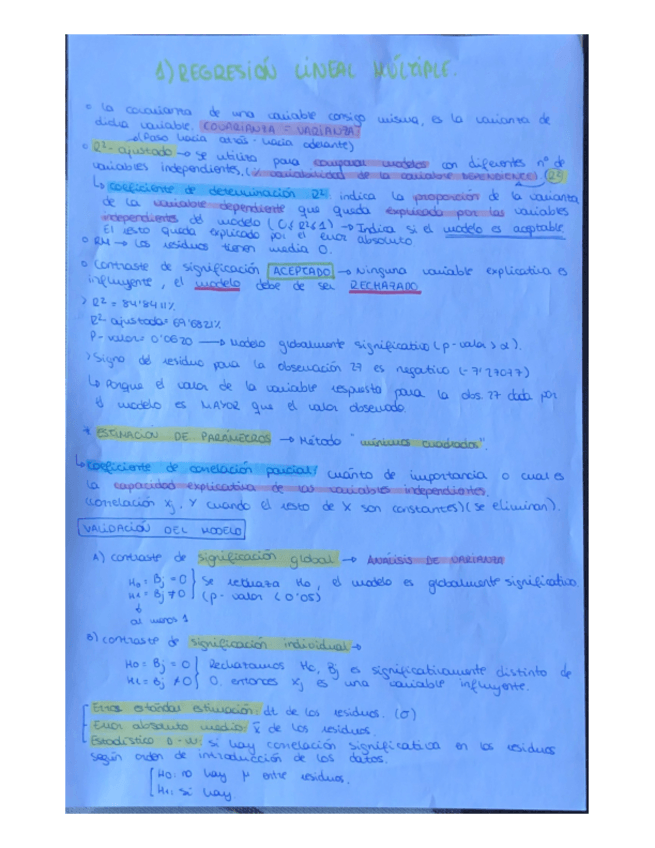 1) REGRESIÓN LINEAL MÚLTIPLE.
o la covarianza de una variable consigo misma, es la varianza de
dicha variable. COVARIANZA = VARIANZA
(Paso hacia atrás - hacia adelante)
o R²-ajustado → se utiliza para comparar modelos con diferentes nº de
variables independientes. (% variabilidad de la variable DEPENDIENTE) R²
↳ coeficiente de determinación R²: indica la proporción de la varianza
de la variable dependiente que queda explicada por las variables
independientes del modelo (0≤R²≤1) → Indica si el modelo es aceptable
El resto queda explicado por el error absoluto
o RM → Los residuos tienen media 0.
o Contraste de significación ACEPTADO → Ninguna variable explicativa es
influyente, el modelo debe de ser RECHAZADO
> R² = 84'8411%
R²-ajustado = 69'6821%
P-valor = 0'0620 → Modelo globalmente significativo (p-valor > α).
> Signo del residuo para la observación 27 es negativo (-7'27077)
↳ Porque el valor de la variable respuesta para la obs. 27 dada por
el modelo es MAYOR que el valor observado.
* ESTIMACIÓN DE PARÁMETROS → Método "mínimos cuadrados".
↳ Coeficiente de correlación parcial / cuánto de importancia o cual es
la capacidad explicativa de las variables independientes.
(correlación Xj, Y cuando el resto de X son constantes) (se eliminan).
VALIDACIÓN DEL MODELO
A) contraste de significación global → ANÁLISIS DE VARIANZA
H0 = Bj = 0 } Se rechaza H0, el modelo es globalmente significativo
H1 = Bj ≠ 0 } (p-valor < 0'05)
↓
al menos 1
B) contraste de significación individual →
H0 = Bj = 0 { Rechazamos H0, Bj es significativamente distinto de
H1 = Bj ≠ 0 } 0, entonces Xj es una variable influyente.
Error estándar estimación: dt de los residuos. (σ)
Error absoluto medio: x̄ de los residuos.
Estadístico D-W: si hay correlación significativa en los residuos
según orden de introducción de los datos.
[ H0: no hay entre residuos.
H1: si hay